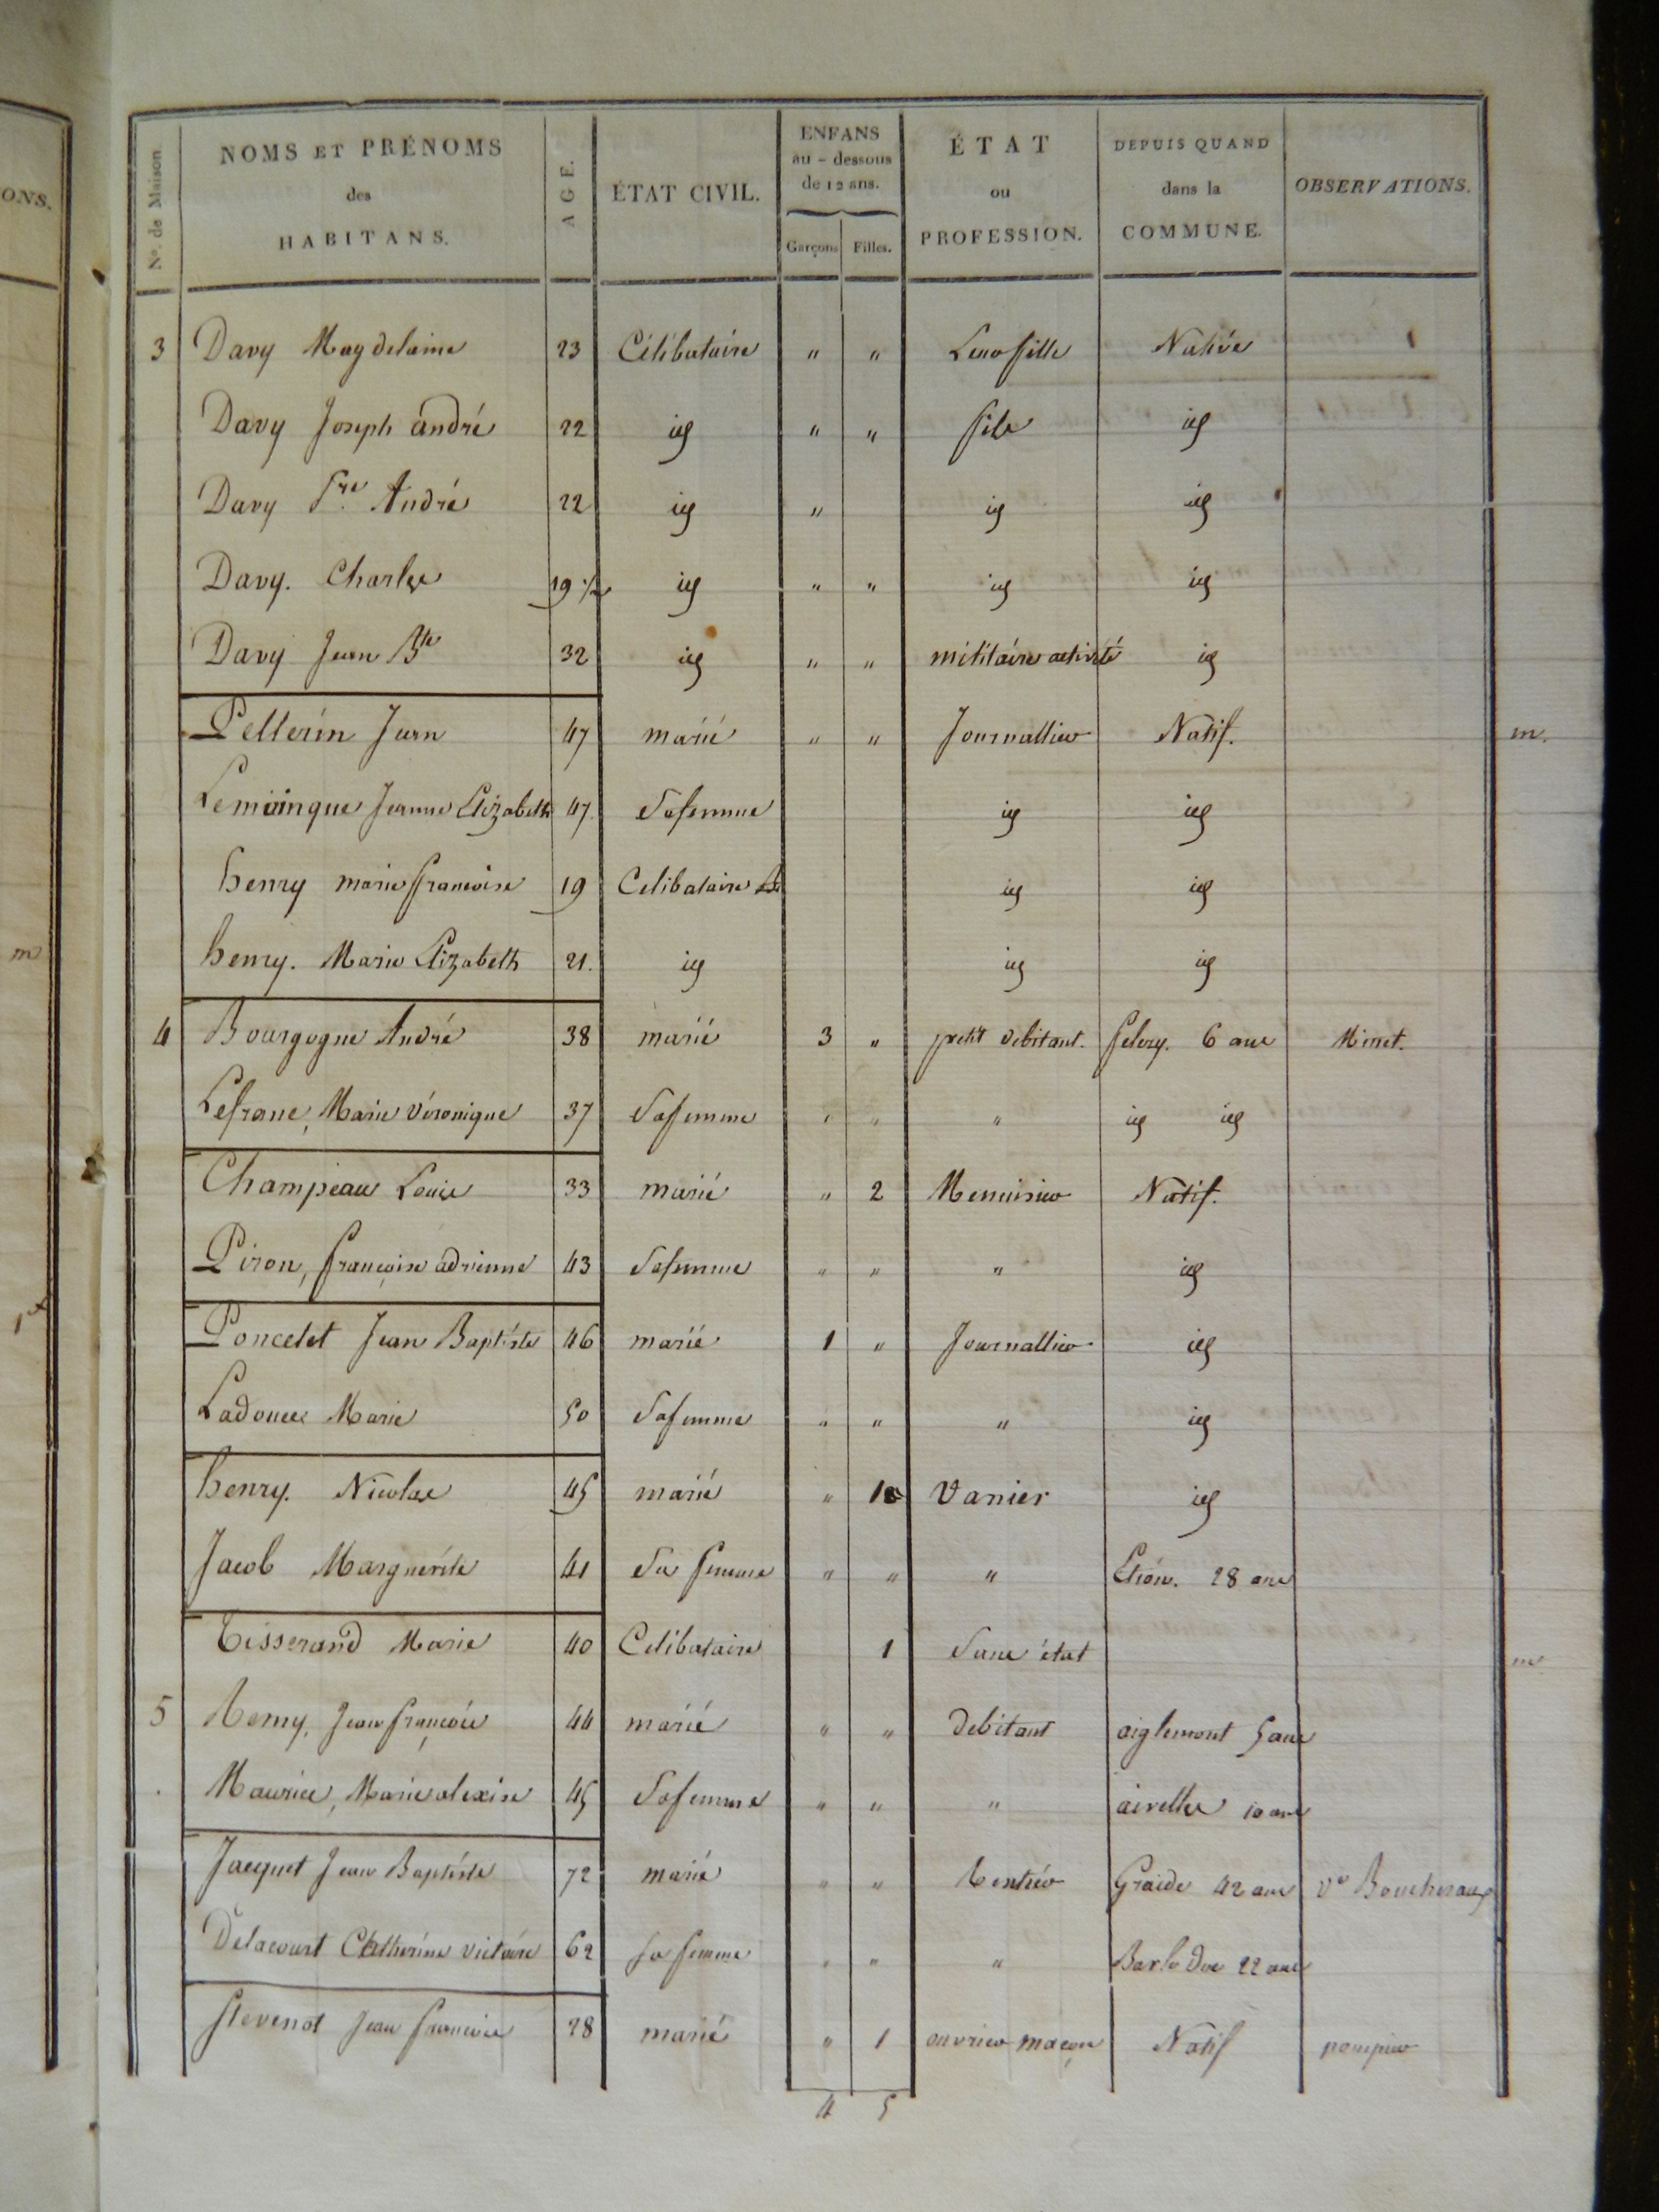 ONS.
m
N°. de Maison.
NOMS ET PRÉNOMS
des
HABITANS.
AGE.
ÉTAT CIVIL.
ENFANS
au-dessous
de 12 ans.
Garçons Filles.
ÉTAT
ou
PROFESSION.
DEPUIS QUAND
dans la
COMMUNE.
OBSERVATIONS.
3 Davy Magdelaine 23 Célibataire " " Leur fille Native
Davy Joseph andré 22 id " " fils id
Davy André 22 id " id id
Davy. Charles 19 ½ id " " id id
Davy Jean Bte 32 id " " militaire activité id
Pellerin Jean 47 marié " " Journallier Natif. m.
Jeanne Elizabeth 47. Sa femme id id
henry marie françoise 19 Celibataire id id
henry. Marie Elizabeth 21. id id id
4 Bourgogne André 38 marié 3 " petit debitant. 6 ans
Lefranc, Marie Véronique 37 Sa femme " " " id id
Champeau Louis 33 marié " 2 Menuisier Natif.
Piron, françoise adrienne 43 Sa femme " " " id
Poncelet Jean Baptiste 46 marié 1 " Journallier id
Ladouce Marie 50 Sa femme " " " id
henry. Nicolas 45 marié " 1 Vanier id
Jacob Marguerite 41 Sa femme " " " Etion. 28 ans
Tisserand Marie 40 Celibataire 1 Sans état m
5 Remy, Jean françois 44 marié " " debitant aiglemont 5 ans
Maurice, Marie alexise 45 Sa femme " " " aivelles 10 ans
Jacquet Jean Baptiste 72 marié " " Rentier Graide 42 ans
Delacourt Catherine victoire 62 sa femme " " " Bar le Duc 22 ans
Stevenot Jean françois 28 marié " 1 ouvrier maçon Natif pompier
4 5